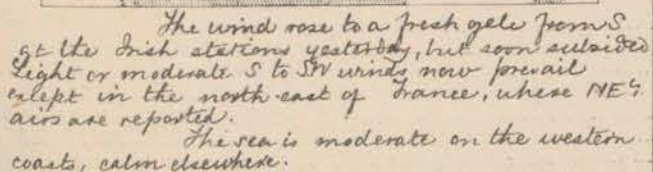 The wind rose to a fresh gale from S
at the Irish stations yesterday, but soon subsided
Light or moderate S to SW winds now prevail
exept in the north-east of France, where NEly
airs are reported.
The sea is moderate on the western
coasts, calm elsewhere.